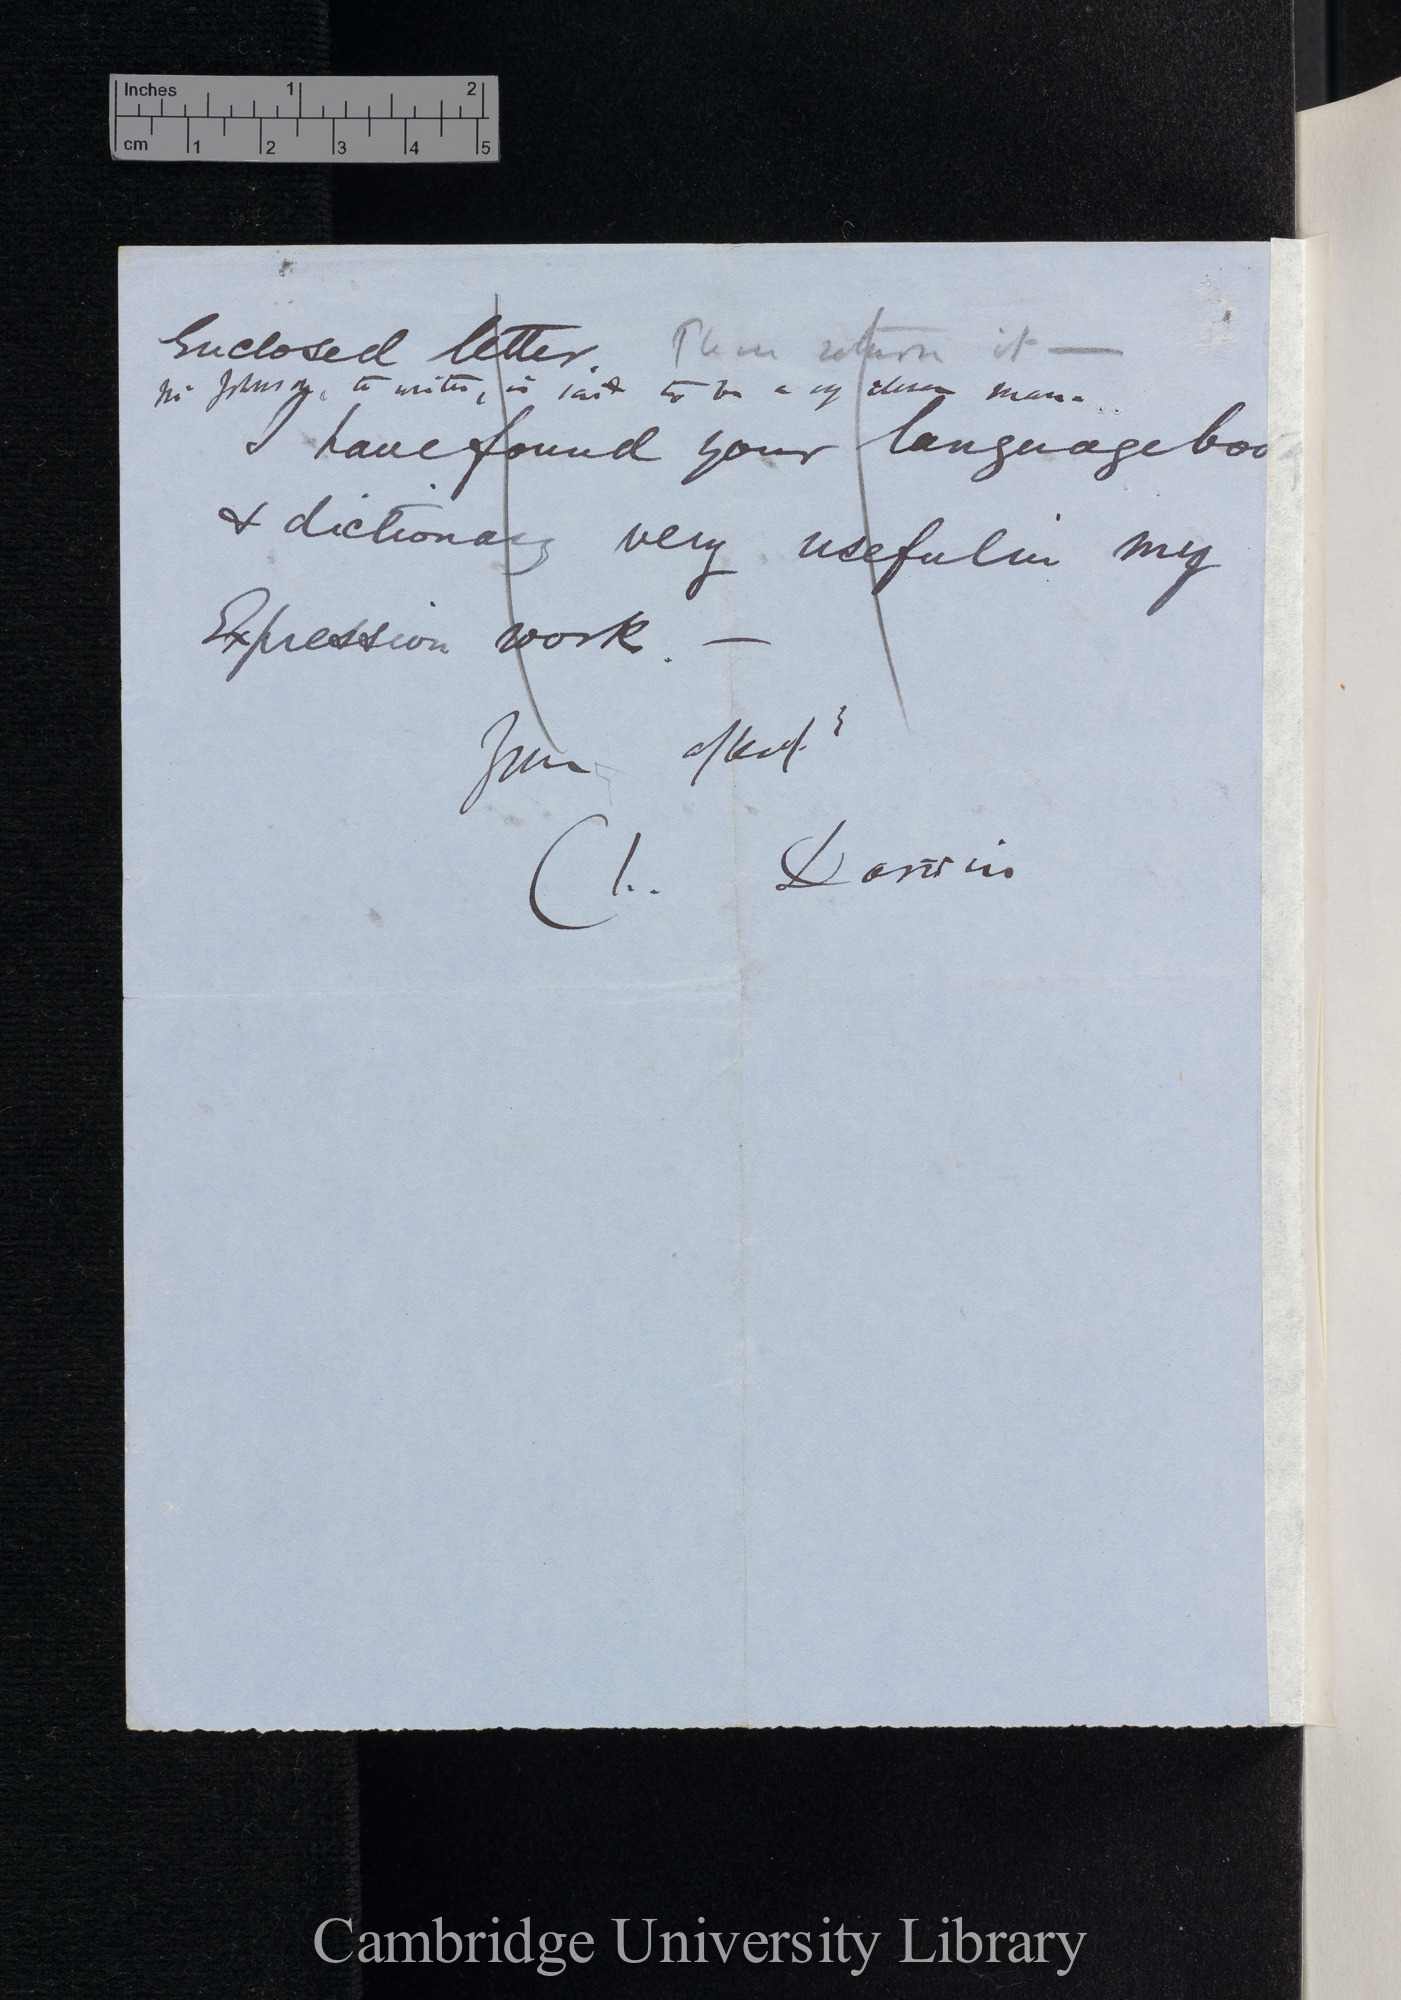 Inches 1 2
cm 1 2 3 4 5
Enclosed letter. Then return it —
Mr Johnson, the writer, is said to be a v. clever man.
I have found your language boo
& dictionary very useful in my
Expression work. —
Yours affect.
Ch. Darwin
Cambridge University Library